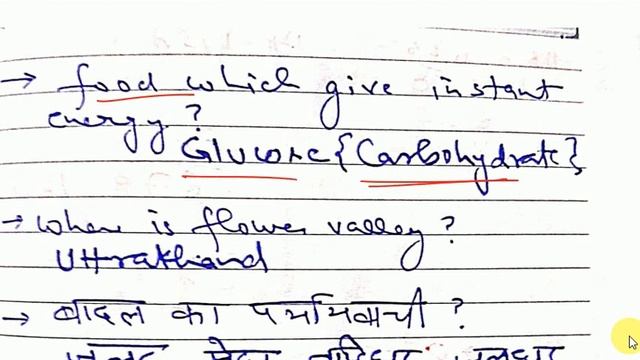 → food which give instant
energy?
Glucose {Carbohydrate}
→ Where is flower valley?
Uttrakhand
→ बादल का पर्यायवाची ?
जलद मेघ वारिधर जलधर